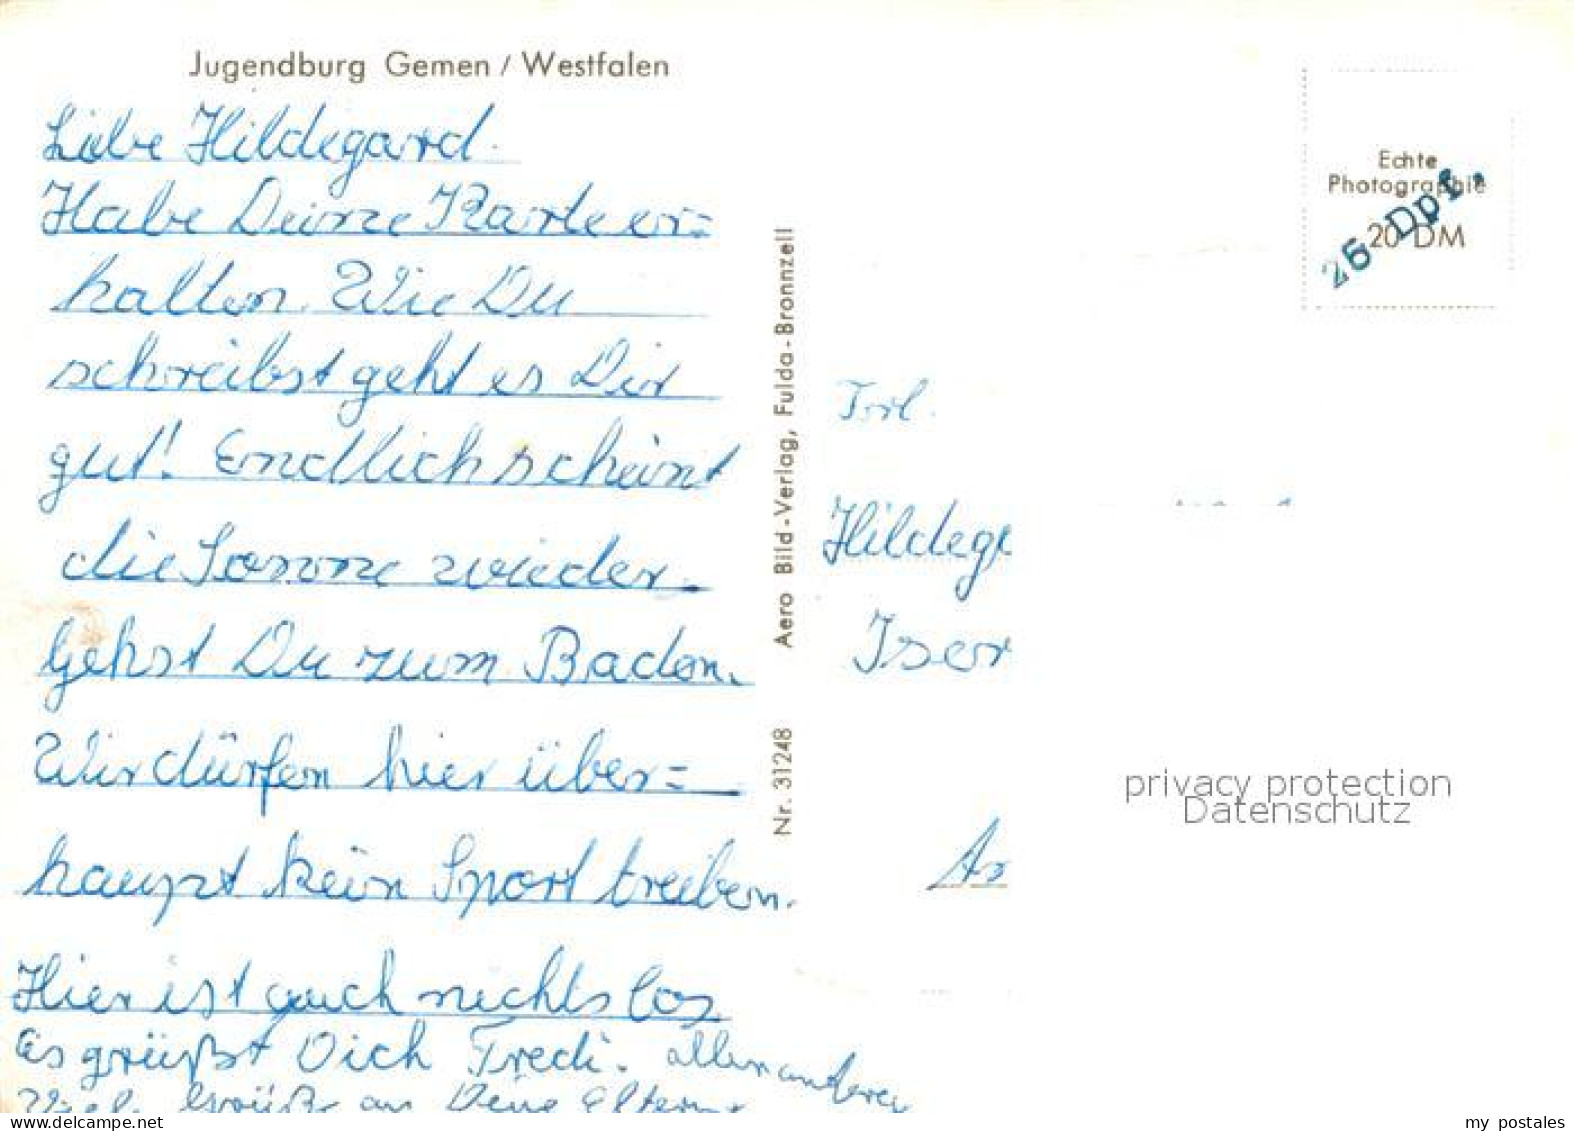 Jugendburg Gemen / Westfalen
Liebe Hildegard.
Habe Deine Karte er=
halten. Wie Du
schreibst geht es Dir
gut! Endlich scheint
die Sonne wieder.
Gehst Du zum Baden.
Wir dürfen hier über=
haupt kein Sport treiben.
Hier ist auch nichts los
Es grüßt Dich Fredi. allen anderen
Viel. Grüße an Deine Eltern
Nr. 31248 Aero Bild-Verlag, Fulda-Bronnzell
Echte
Photographie
20 DM
25 Dpf.
Frl.
Hildeg
Iser
privacy protection
Datenschutz
my postales
delcampe.net